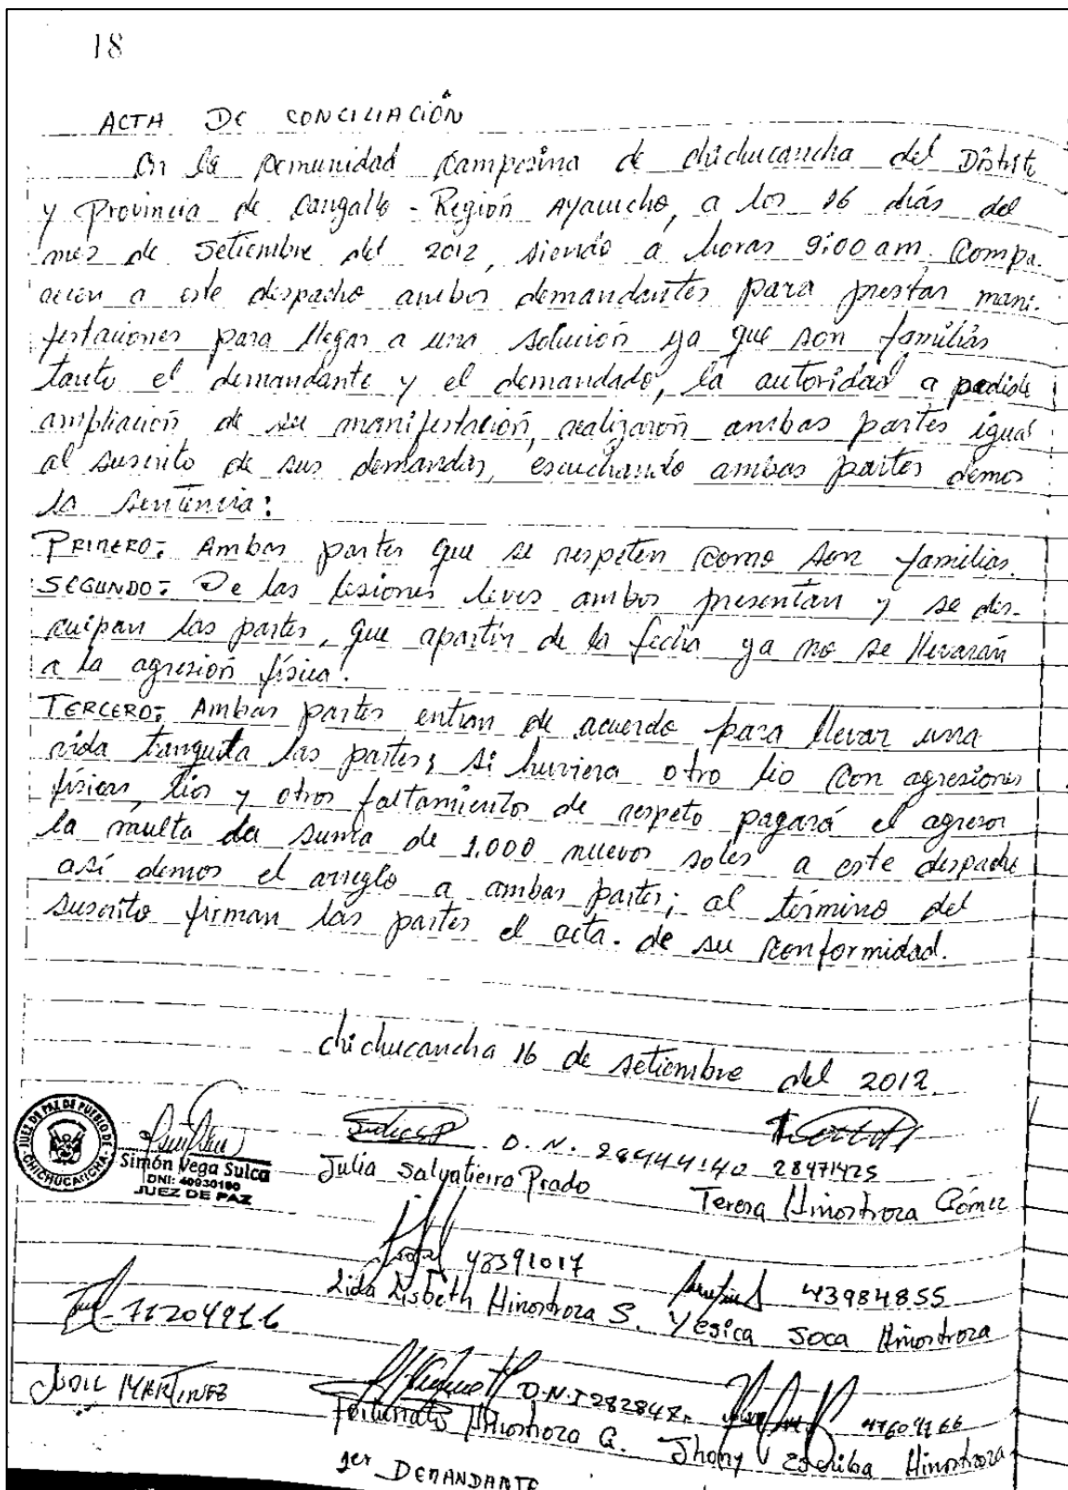 18
ACTA DE CONCILIACIÓN
En la comunidad campesina de chichucancha del Distrito
y Provincia de Cangallo - Región Ayacucho, a los 16 días del
mez de Setiembre del 2012, siendo a horas 9:00 am. Compa-
recen a este despacho ambos demandantes para prestar mani-
festaciones para llegar a una solución ya que son familias
tanto el demandante y el demandado, la autoridad a pedido
ampliación de su manifestación, realizarón ambas partes igual
al suscrito de sus demandas, escuchando ambas partes démos
la sentencia:
PRIMERO: Ambas partes que se respeten como son familias.
SEGUNDO: De las lesiones leves ambos presentan y se dis-
culpan las partes, que apartir de la fecha ya no se llevarán
a la agresión física.
TERCERO: Ambas partes entran de acuerdo para llevar una
vida tranquila las partes; si huviera otro lio con agresiones
físicas, lios y otros faltamientos de respeto pagará el agresor
la multa la suma de 1.000 nuevos soles a este despacho
así démos el arreglo a ambas partes; al término del
suscrito firman las partes el acta. de su conformidad.
chichucancha 16 de setiembre del 2012.
JUEZ DE PAZ DE PUEBLO DE CHICHUCANCHA
Simón Vega Sulca
DNI: 40930190
JUEZ DE PAZ
D.N. 28444140 28471425
Julia Salvatierra Prado Teresa Hinostroza Gómez
43391017 43984855
Lida Lisbeth Hinostroza S. Yesica Soca Hinostroza
71204916
MARTINEZ
D.N.I 282848 47609166
Fortunato Hinostroza G. Jhony Escriba Hinostroza
1er DEMANDANTE